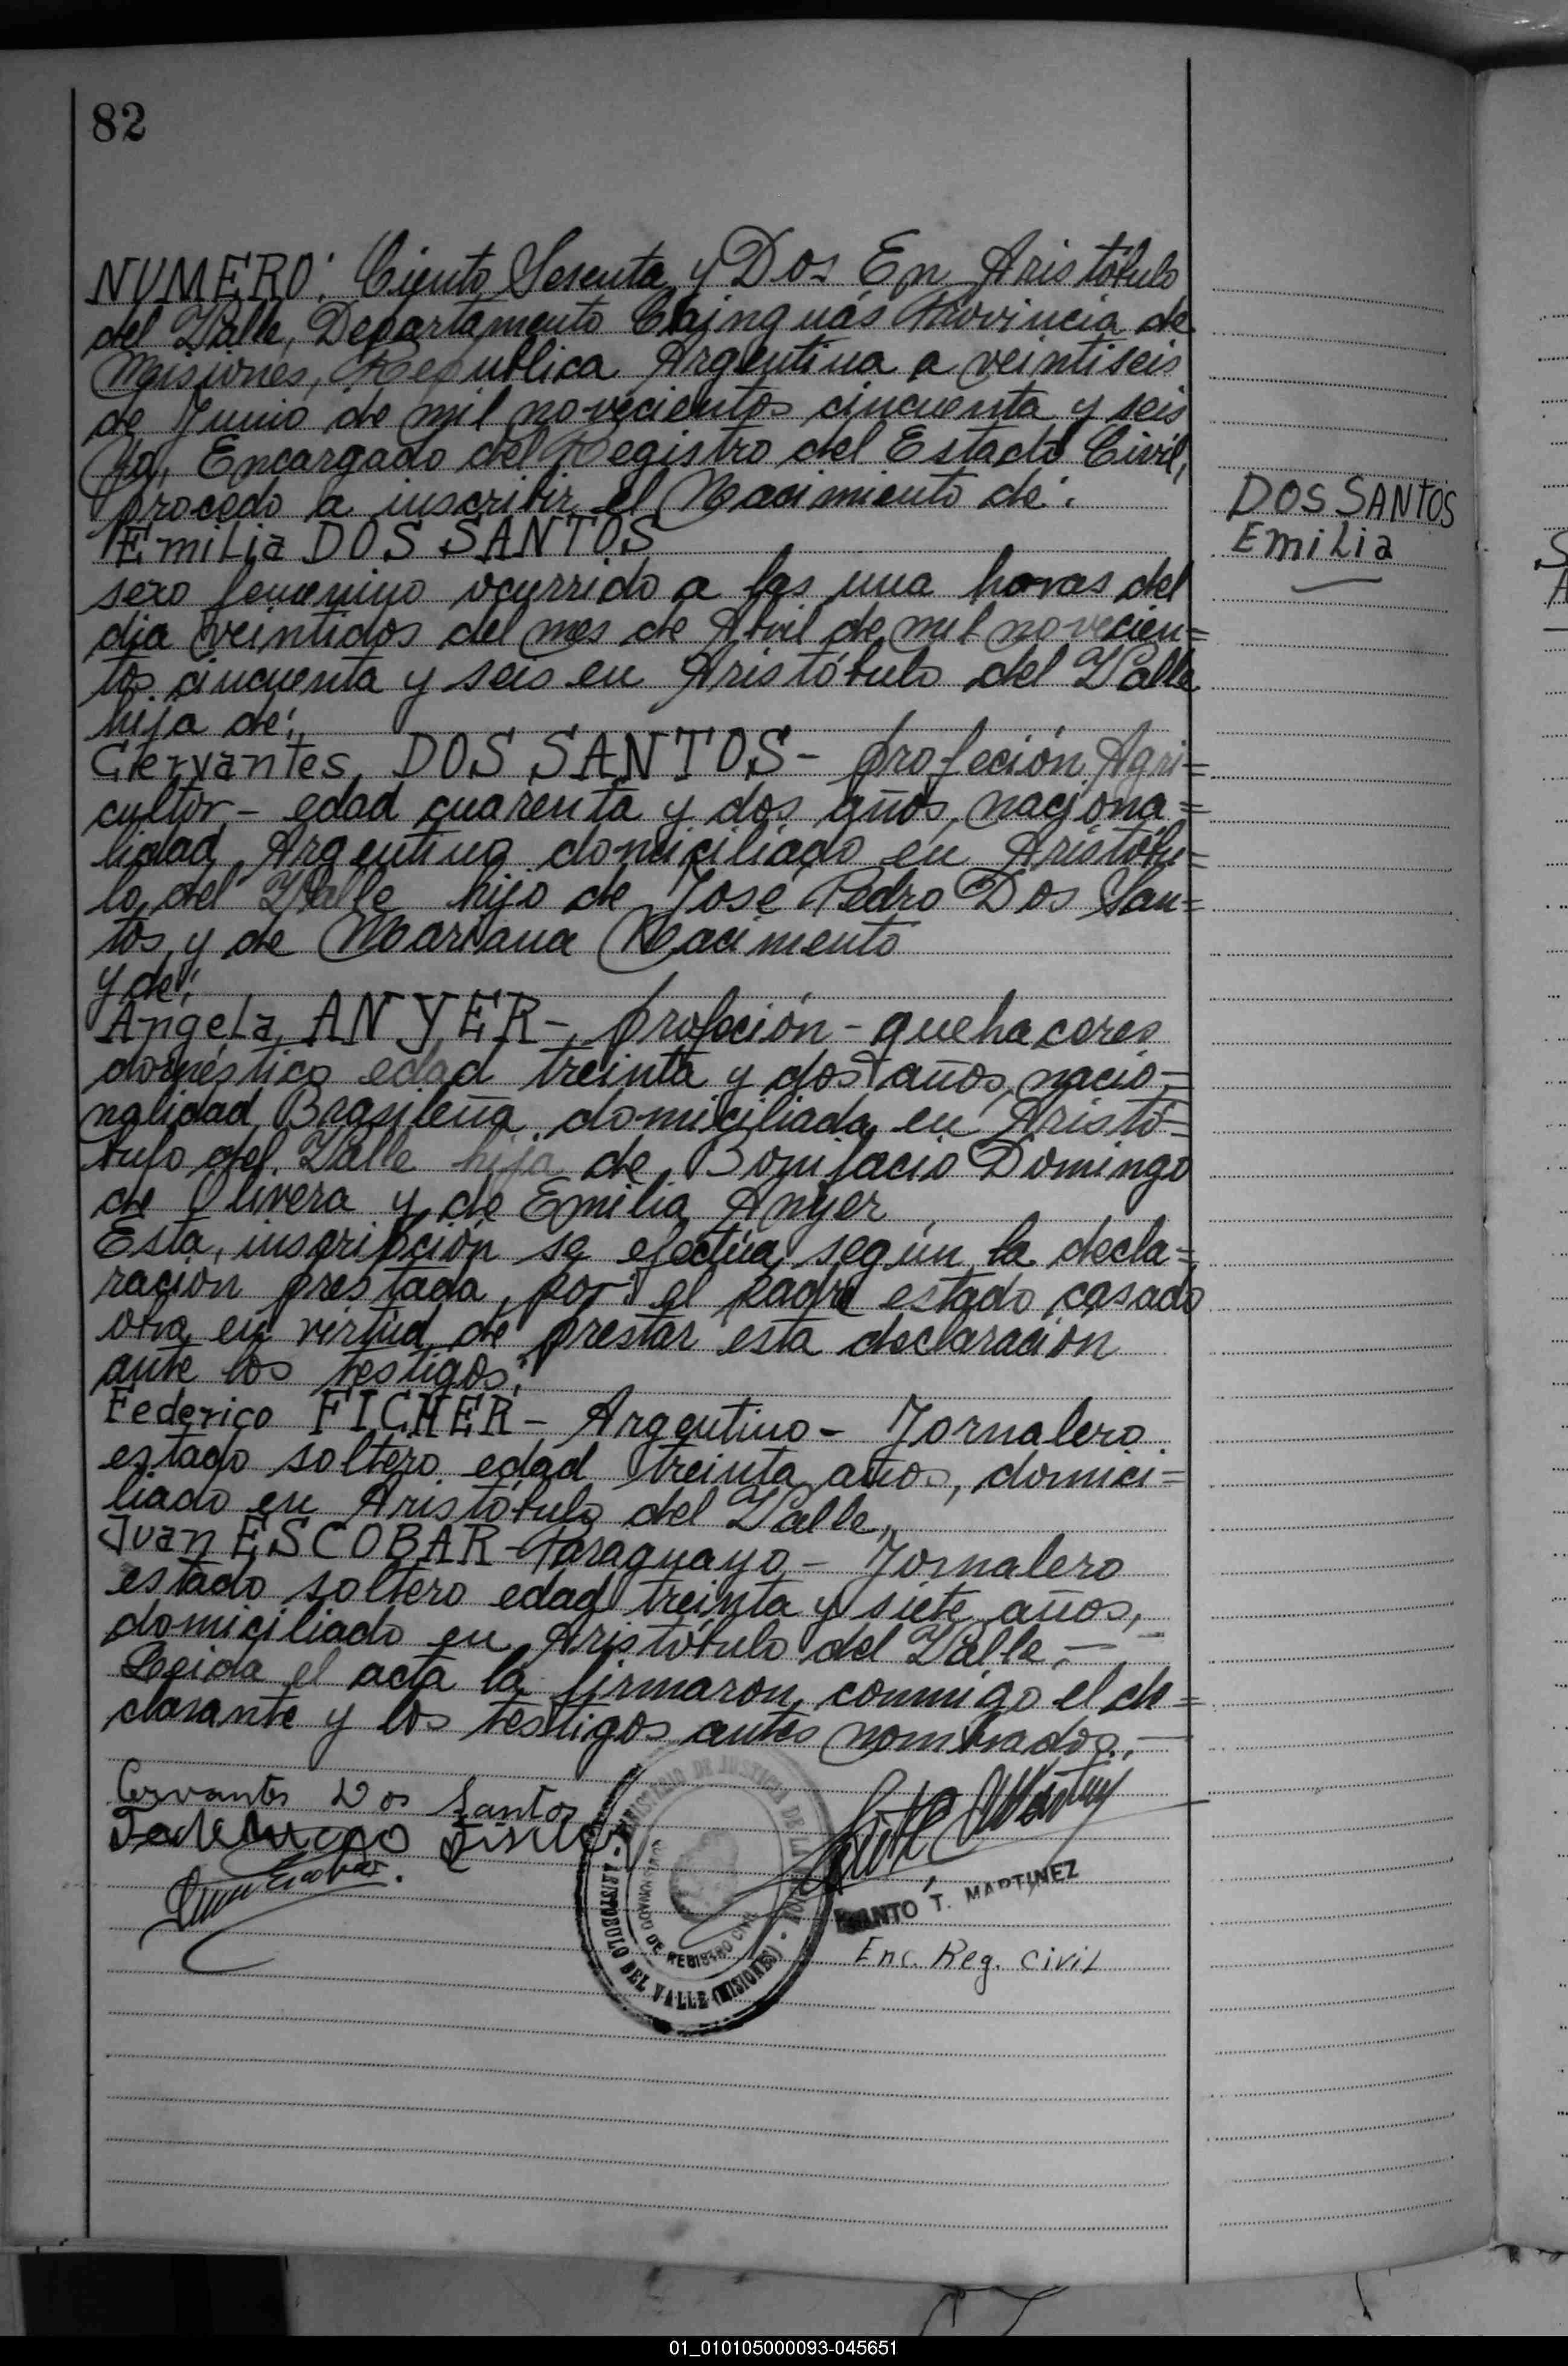 82
NUMERO: Ciento Sesenta y Dos En Aristóbulo
del Valle, Departamento Cainguás Provincia de
Misiones, Republica Argentina a veintiseis
de Junio de mil novecientos cincuenta y seis
Yo, Encargado del Registro del Estado Civil,
procedo a inscribir el Nacimiento de:
Emilia DOS SANTOS
DOS SANTOS
Emilia
sexo femenino ocurrido a las una horas del
dia veintidos del mes de Abril de mil novecien=
tos cincuenta y seis en Aristóbulo del Valle
hija de:
Cervantes, DOS SANTOS - profeción Agri=
cultor - edad cuarenta y dos años, naciona=
lidad, Argentina domiciliado en Aristóbu=
lo del Valle hijo de José Pedro Dos San=
tos, y de Mariana Nacimento
y de:
Angela, ANYER -, profeción - quehaceres
doméstico edad treinta y dos años, nacio=
nalidad, Brasileña domiciliada en Aristó=
bulo del Valle hija de, Bonifacio Domingo
de Olivera y de Emilia Anyer
Esta, inscripción se efectúa según la decla=
ración prestada, por: el padre estado casado
obra en virtud de prestar esta declaración
ante los testigos:
Federico FICHER - Argentino - Jornalero
estado soltero edad treinta años, domici=
liado en Aristóbulo del Valle,
Juan ESCOBAR - Paraguayo - Jornalero
estado soltero edad treinta y siete años,
domiciliado en Aristóbulo del Valle. -
Leida el acta la firmaron, conmigo el de=
clarante y los testigos antes nombrados. -
Cervantes Dos Santos
MINISTERIO DE JUSTICIA DE LA
ARISTOBULO DEL VALLE (MISIONES)
DE REGISTRO CIVIL
T. MARTINEZ
Enc. Reg. Civil
01_010105000093-045651